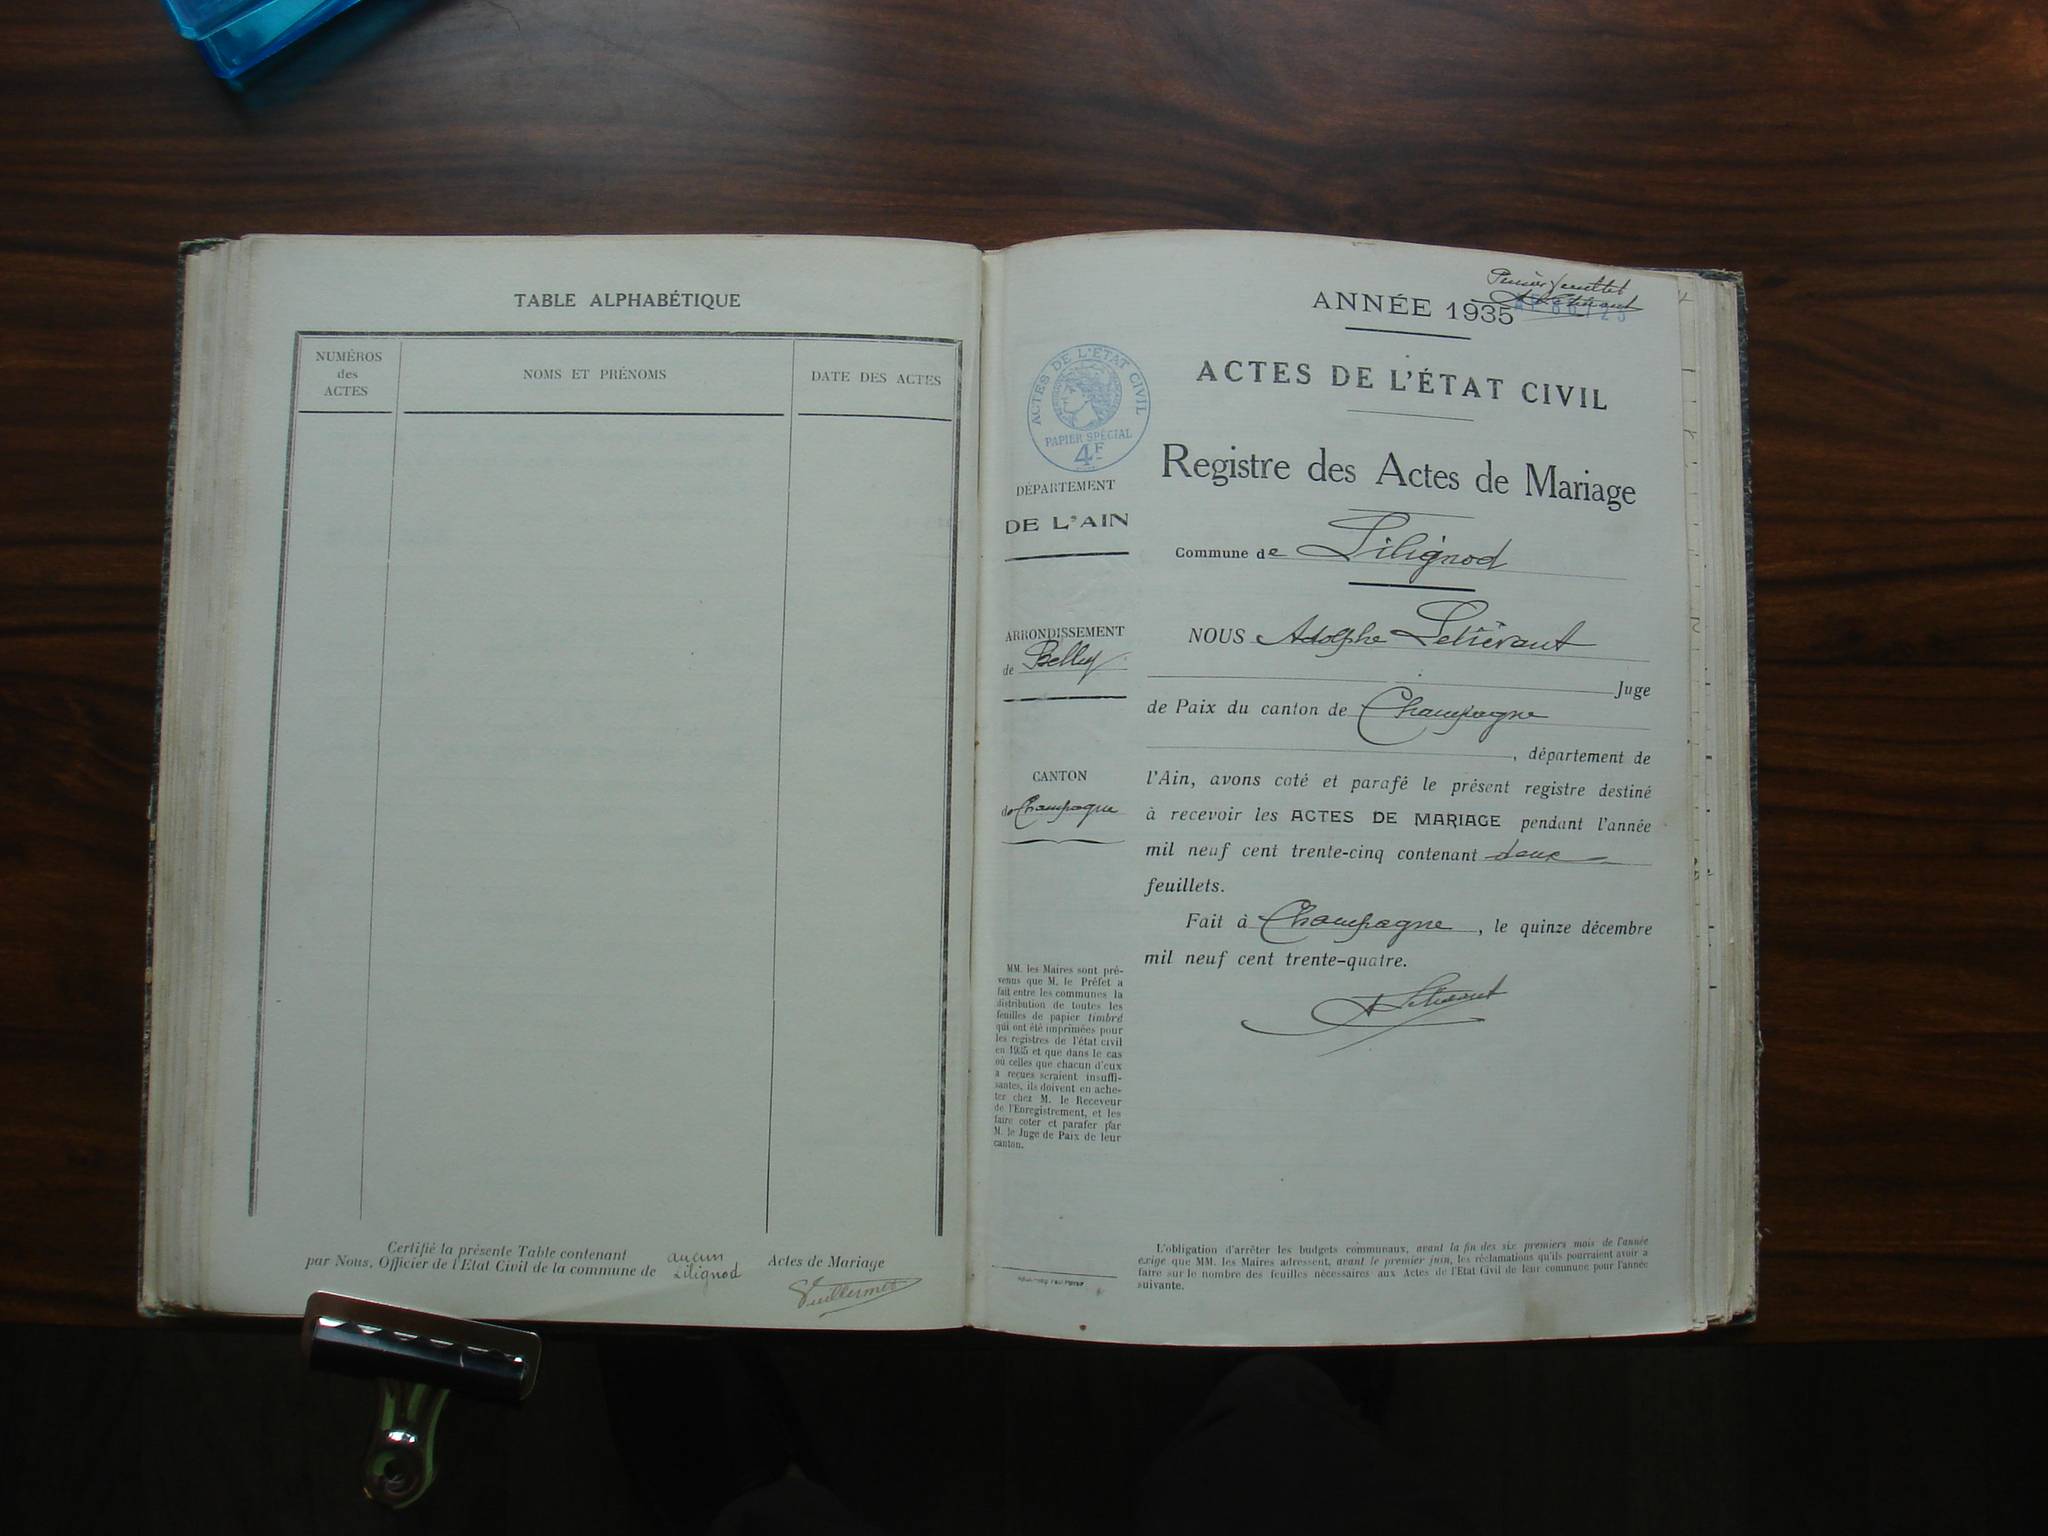 TABLE ALPHABÉTIQUE
NUMÉROS
des
ACTES
NOMS ET PRÉNOMS
DATE DES ACTES
Certifié la présente Table contenant aucun Actes de Mariage
par Nous, Officier de l'Etat Civil de la commune de Lilignod
Vuillermet
Premier feuillet
ANNÉE 1935
ACTES DE L'ÉTAT CIVIL
PAPIER SPÉCIAL
4F
ACTES DE L'ÉTAT CIVIL
Registre des Actes de Mariage
Commune de Lilignod
DÉPARTEMENT
DE L'AIN
ARRONDISSEMENT
de Belley
CANTON
de Champagne
NOUS Adolphe
Juge
de Paix du canton de Champagne
, département de
l'Ain, avons coté et parafé le présent registre destiné
à recevoir les ACTES DE MARIAGE pendant l'année
mil neuf cent trente-cinq contenant deux
feuillets.
Fait à Champagne, le quinze décembre
mil neuf cent trente-quatre.
MM. les Maires sont pré-
venus que M. le Préfet a
fait entre les communes la
distribution de toutes les
feuilles de papier timbré
qui ont été imprimées pour
les registres de l'état civil
en 1935 et que dans le cas
où celles que chacun d'eux
a reçues seraient insuffi-
santes, ils doivent en ache-
ter chez M. le Receveur
de l'Enregistrement, et les
faire coter et parafer par
M. le Juge de Paix de leur
canton.
L'obligation d'arrêter les budgets communaux, avant la fin des six premiers mois de l'année
exige que MM. les Maires adressent, avant le premier juin, les réclamations qu'ils pourraient avoir à
faire sur le nombre des feuilles nécessaires aux Actes de l'Etat Civil de leur commune pour l'année
suivante.